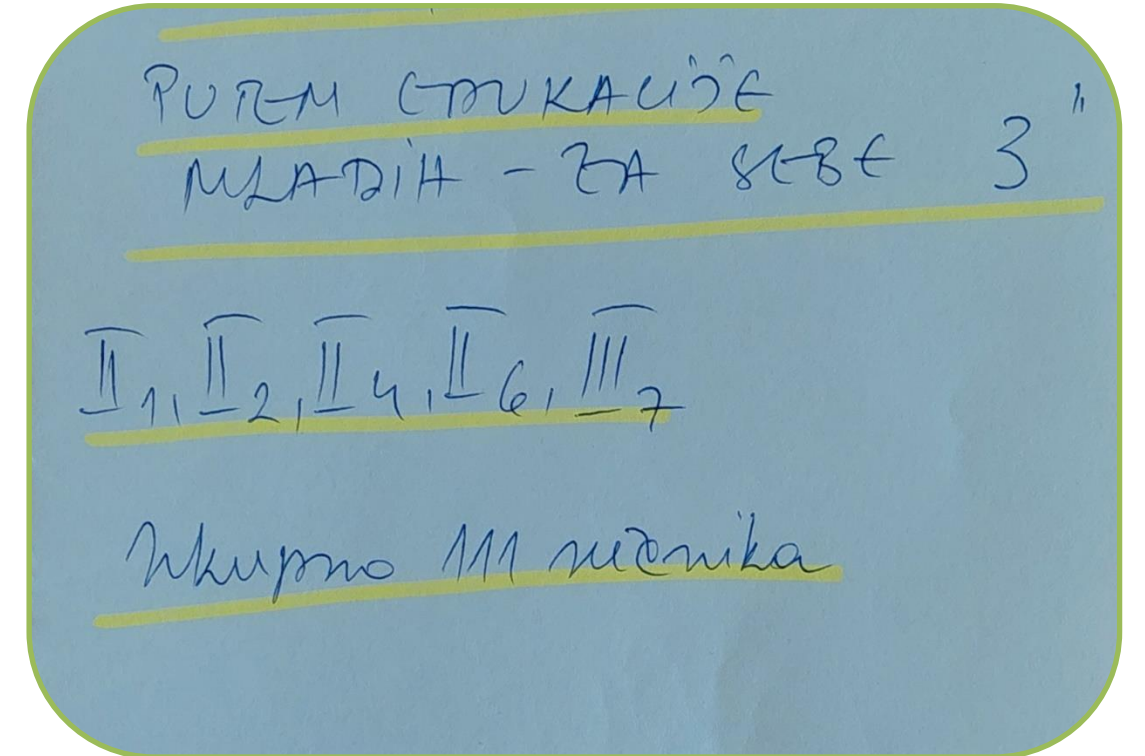 PUTEM EDUKACIJE
MLADIH - ZA SEBE 3"
II1, II2, II4, II6, III7
Ukupno 111 učenika